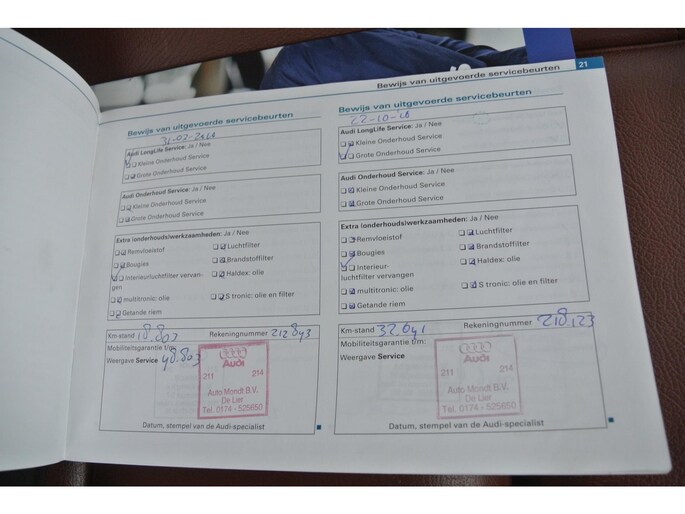 Bewijs van uitgevoerde servicebeurten 21
Bewijs van uitgevoerde servicebeurten
Audi LongLife Service: Ja / Nee
Kleine Onderhoud Service
Grote Onderhoud Service
Audi Onderhoud Service: Ja / Nee
Kleine Onderhoud Service
Grote Onderhoud Service
Extra (onderhouds)werkzaamheden: Ja / Nee
Remvloeistof Luchtfilter
Bougies Brandstoffilter
Interieurluchtfilter vervan-
gen Haldex: olie
multitronic: olie S tronic: olie en filter
Getande riem
Km-stand 18.803 Rekeningnummer 212843
Mobiliteitsgarantie t/m:
Weergave Service 48.803
Audi
211 214
Auto Mondt B.V.
De Lier
Tel. 0174 - 525650
Datum, stempel van de Audi-specialist
Bewijs van uitgevoerde servicebeurten
22-10-
Audi LongLife Service: Ja / Nee
Kleine Onderhoud Service
Grote Onderhoud Service
Audi Onderhoud Service: Ja / Nee
Kleine Onderhoud Service
Grote Onderhoud Service
Extra (onderhouds)werkzaamheden: Ja / Nee
Remvloeistof Luchtfilter
Bougies Brandstoffilter
Interieur-
luchtfilter vervangen Haldex: olie
multitronic: olie S tronic: olie en filter
Getande riem
Km-stand 32.641 Rekeningnummer 218123
Mobiliteitsgarantie t/m:
Weergave Service
Audi
211 214
Auto Mondt B.V.
De Lier
Tel. 0174 - 525650
Datum, stempel van de Audi-specialist